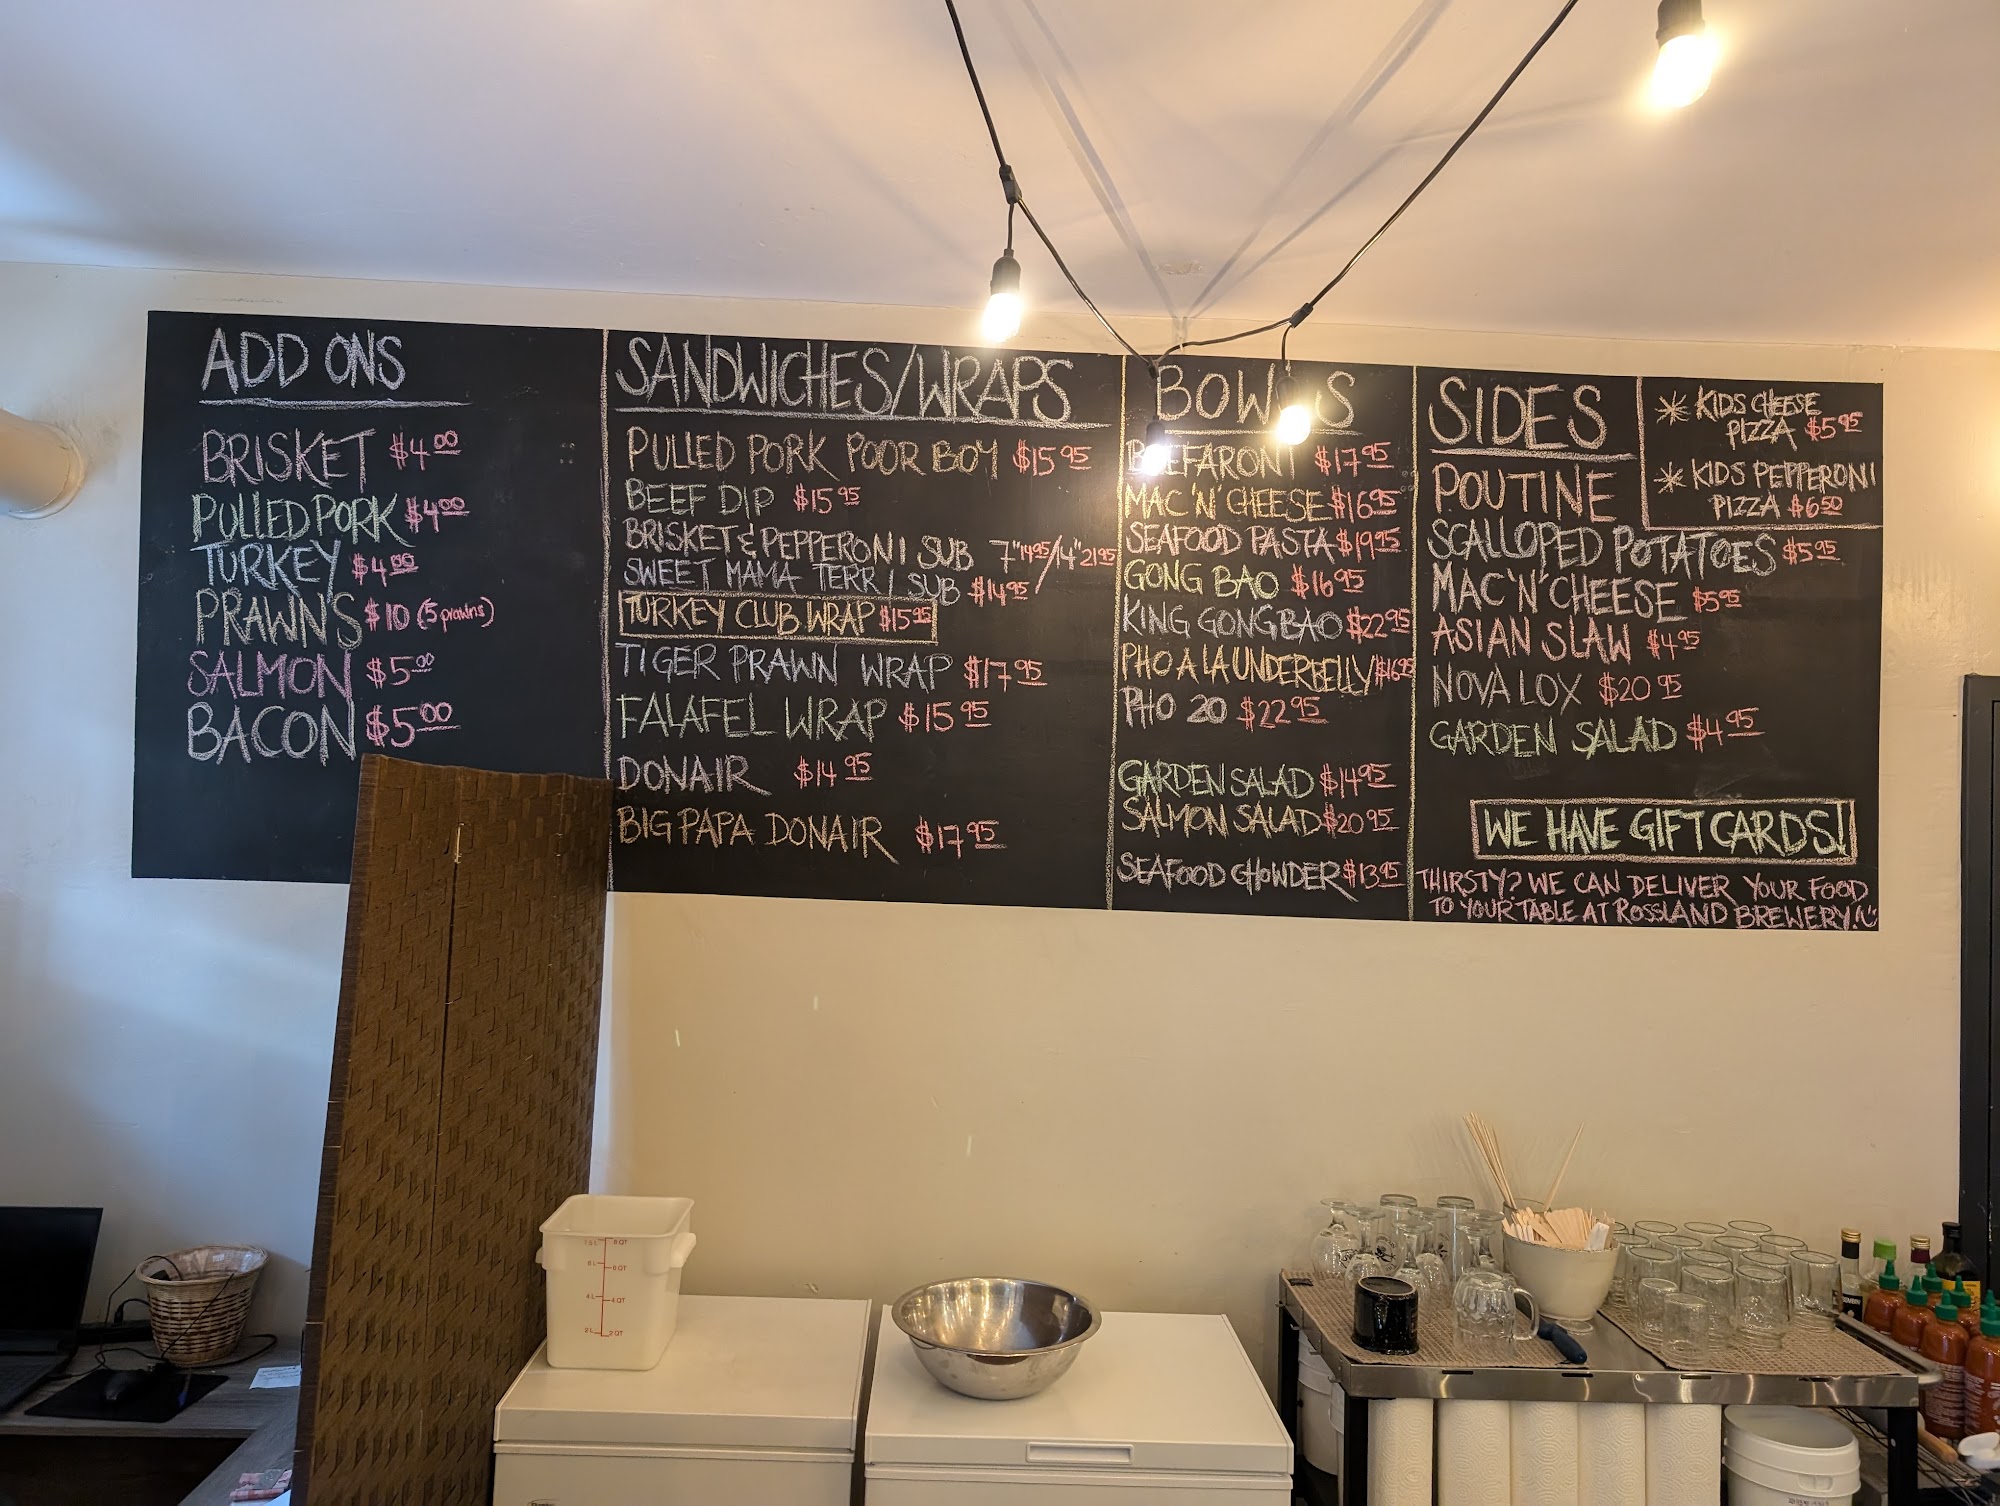 ADD ONS
BRISKET $4.00
PULLED PORK $4.00
TURKEY $4.00
PRAWN'S $10 (5 prawns)
SALMON $5.00
BACON $5.00
SANDWICHES/WRAPS
PULLED PORK POOR BOY $15.95
BEEF DIP $15.95
BRISKET & PEPPERONI SUB 7" 14.95/14" 21.95
SWEET MAMA TERRI SUB $14.95
TURKEY CLUB WRAP $15.95
TIGER PRAWN WRAP $17.95
FALAFEL WRAP $15.95
DONAIR $14.95
BIG PAPA DONAIR $17.95
BOWLS
BEEFARONI $17.95
MAC 'N' CHEESE $16.95
SEAFOOD PASTA $19.95
GONG BAO $16.95
KING GONG BAO $22.95
PHO A LA UNDERBELLY $16.95
PHO 20 $22.95
GARDEN SALAD $14.95
SALMON SALAD $20.95
SEAFOOD CHOWDER $13.95
SIDES
POUTINE
SCALLOPED POTATOES $5.95
MAC 'N' CHEESE $5.95
ASIAN SLAW $4.95
NOVA LOX $20.95
GARDEN SALAD $4.95
KIDS CHEESE
PIZZA $5.95
KIDS PEPPERONI
PIZZA $6.50
WE HAVE GIFT CARDS!
THIRSTY? WE CAN DELIVER YOUR FOOD
TO YOUR TABLE AT ROSSLAND BREWERY!
8 QT
6 L 6 QT
4 L 4 QT
2 L 2 QT